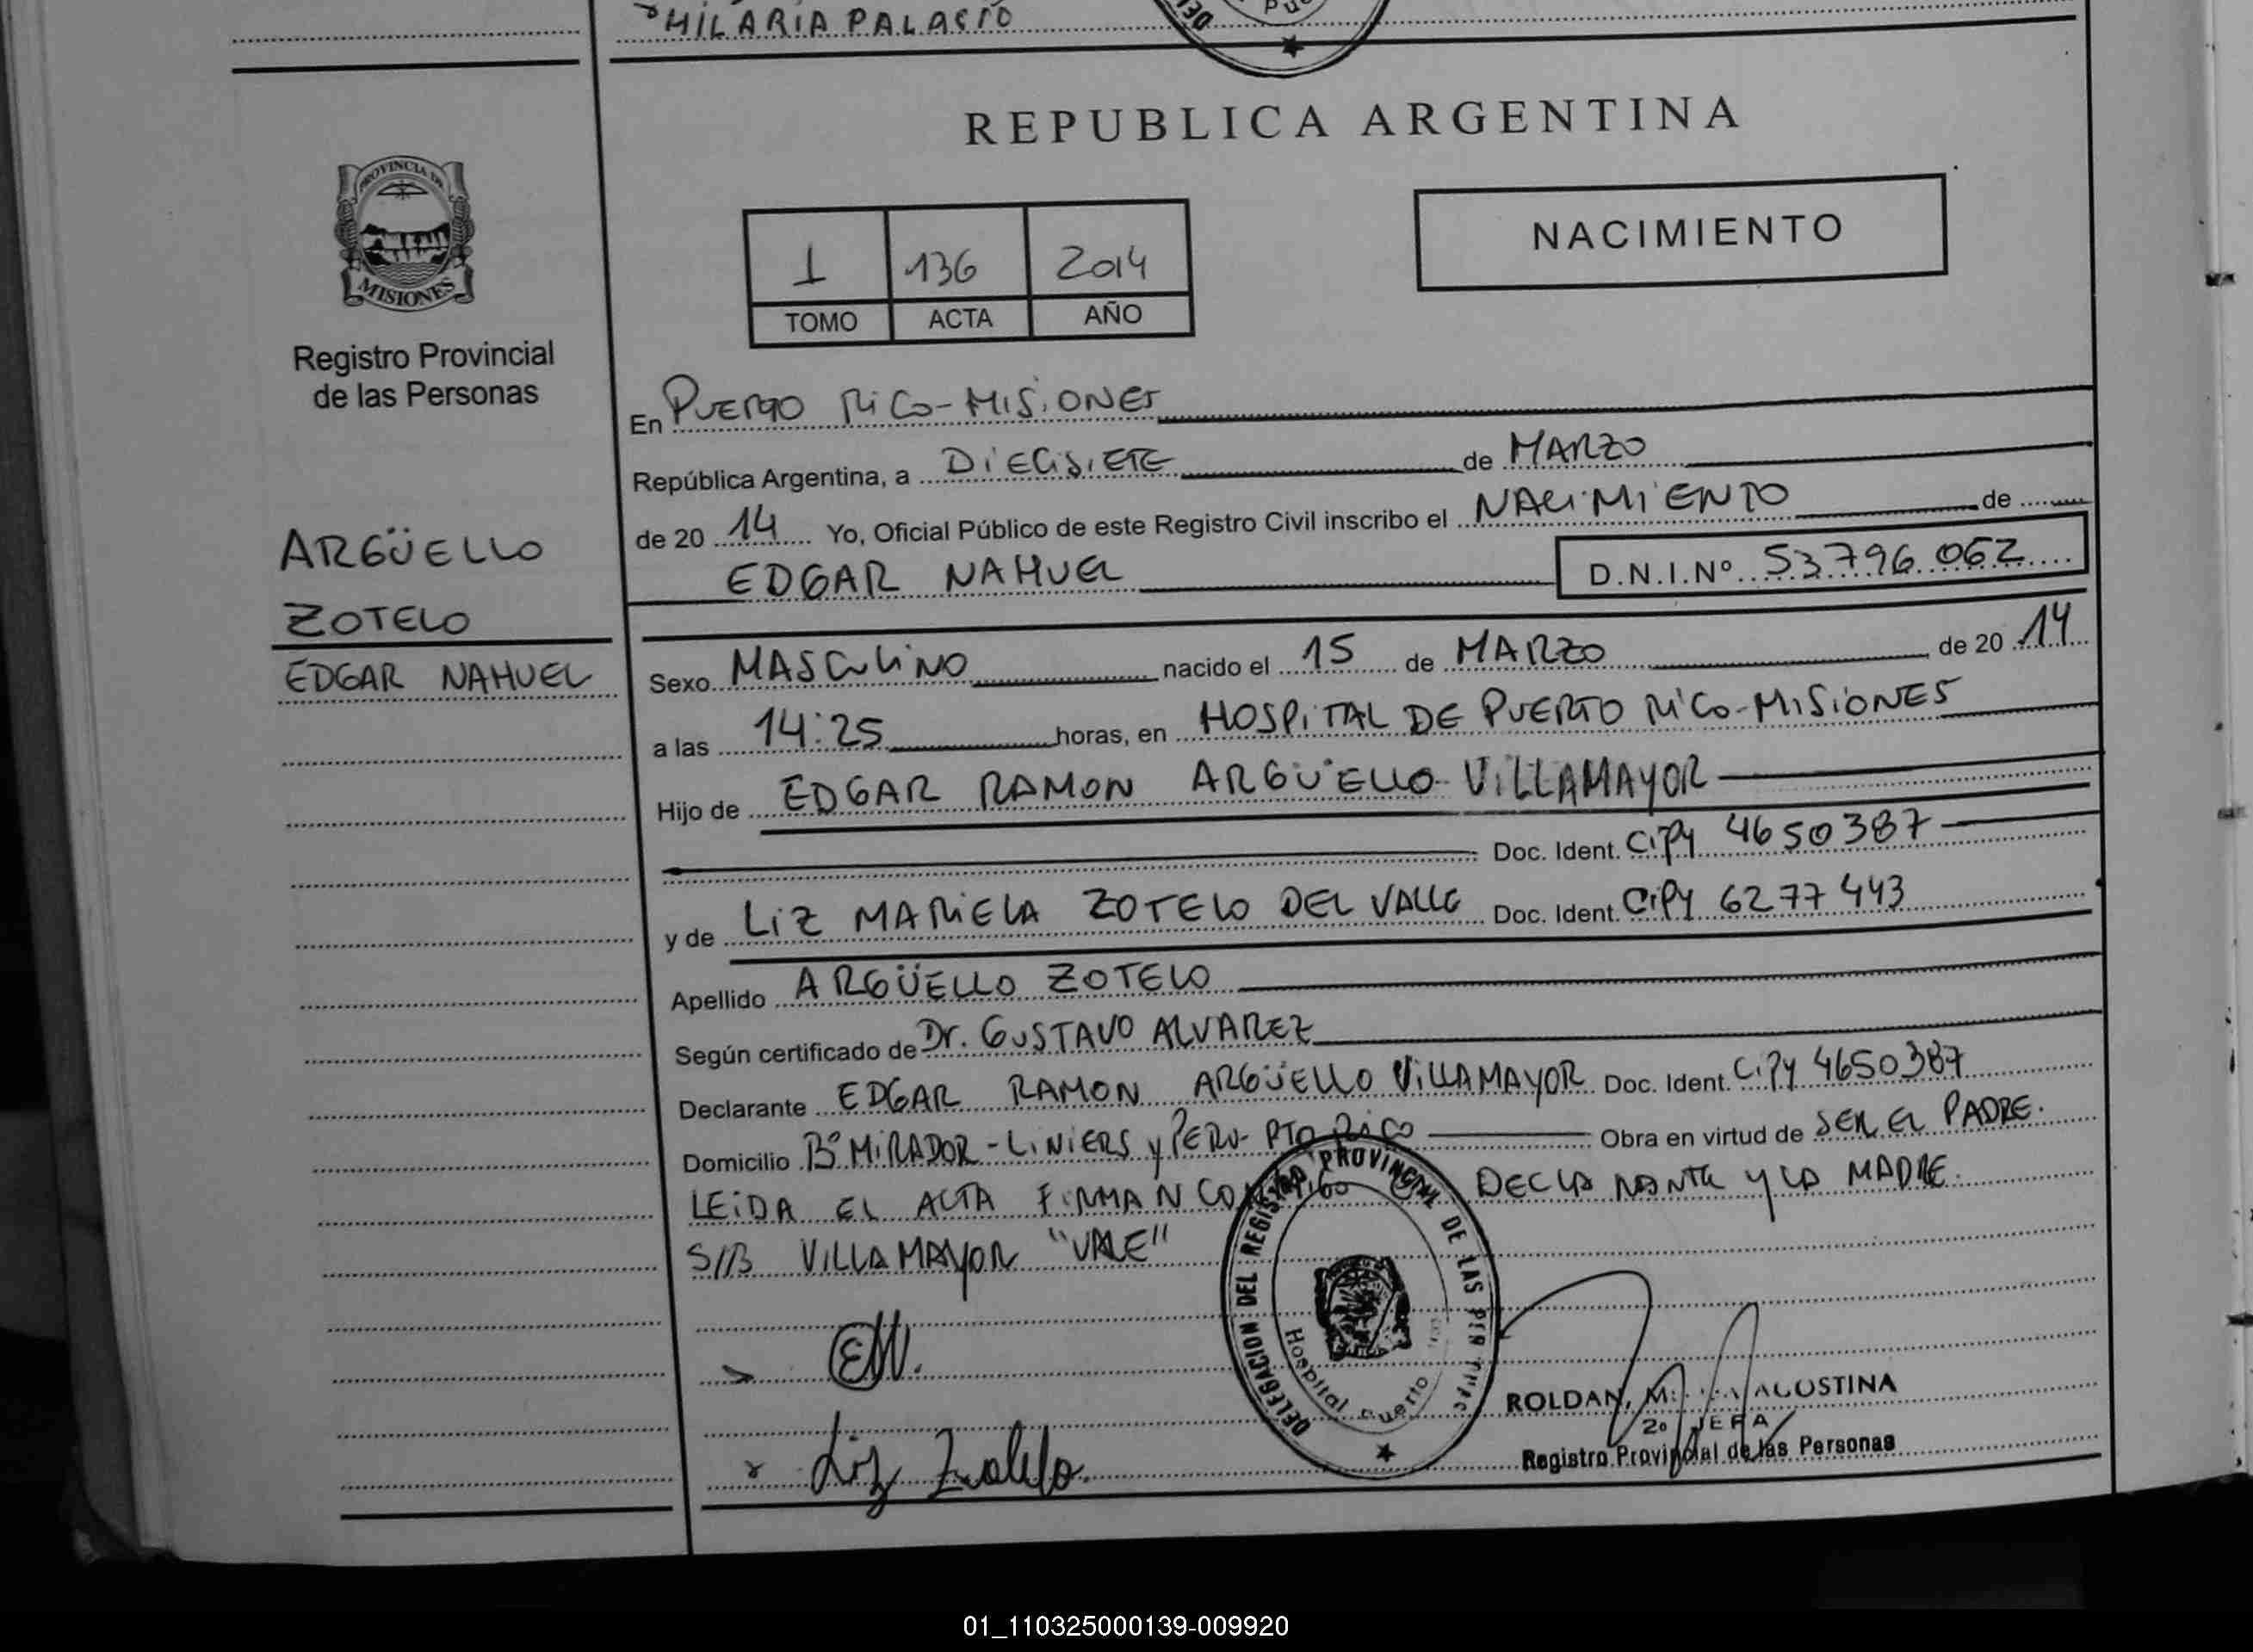 HILARIA PALACIO
REPUBLICA ARGENTINA
PROVINCIA DE
MISIONES
Registro Provincial
de las Personas
ARGÜELLO
ZOTELO
EDGAR NAHUEL
1 136 2014
TOMO ACTA AÑO
NACIMIENTO
En PUERTO RICO-MISIONES
República Argentina, a DIECISIETE de MARZO
de 20 14 Yo, Oficial Público de este Registro Civil inscribo el NACIMIENTO de
EDGAR NAHUEL D.N.I.Nº 53.796.062
Sexo MASCULINO nacido el 15 de MARZO de 20 14
a las 14:25 horas, en HOSPITAL DE PUERTO RICO-MISIONES
Hijo de EDGAR RAMON ARGÜELLO VILLAMAYOR
Doc. Ident. CiPy 4650387
y de LIZ MARIELA ZOTELO DEL VALLE Doc. Ident. CiPy 6277443
Apellido ARGÜELLO ZOTELO
Según certificado de Dr. GUSTAVO ALVAREZ
Declarante EDGAR RAMON ARGÜELLO VILLAMAYOR Doc. Ident. CiPy 4650387
Domicilio Bº MIRADOR-LINIERS y PERU-PTO RICO Obra en virtud de SER EL PADRE.
LEIDA EL ACTA FIRMAN CONMIGO DECLARANTE Y LA MADRE.
S/B VILLAMAYOR "VALE"
DELEGACION DEL REGISTRO PROVINCIAL DE LAS PERSONAS
Hospital Puerto
ROLDAN, AGOSTINA
2º JEFA
Registro Provincial de las Personas
Liz Zotelo
01_110325000139-009920